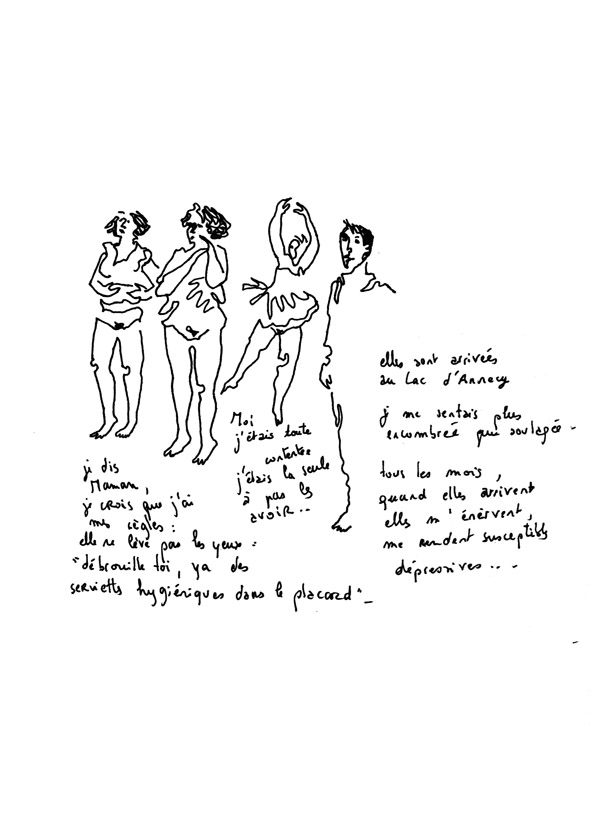 je dis
Maman,
je crois que j'ai
mes règles :
elle ne lève pas les yeux :
"débrouille toi, ya des
serviettes hygiéniques dans le placard"_
Moi
j'étais toute
contente
j'étais la seule
à pas les
avoir...
elles sont arrivées
au Lac d'Annecy
je me sentais plus
encombrée que soulagée -
tous les mois,
quand elles arrivent
elles m'énervent,
me rendent susceptibles
dépressives...